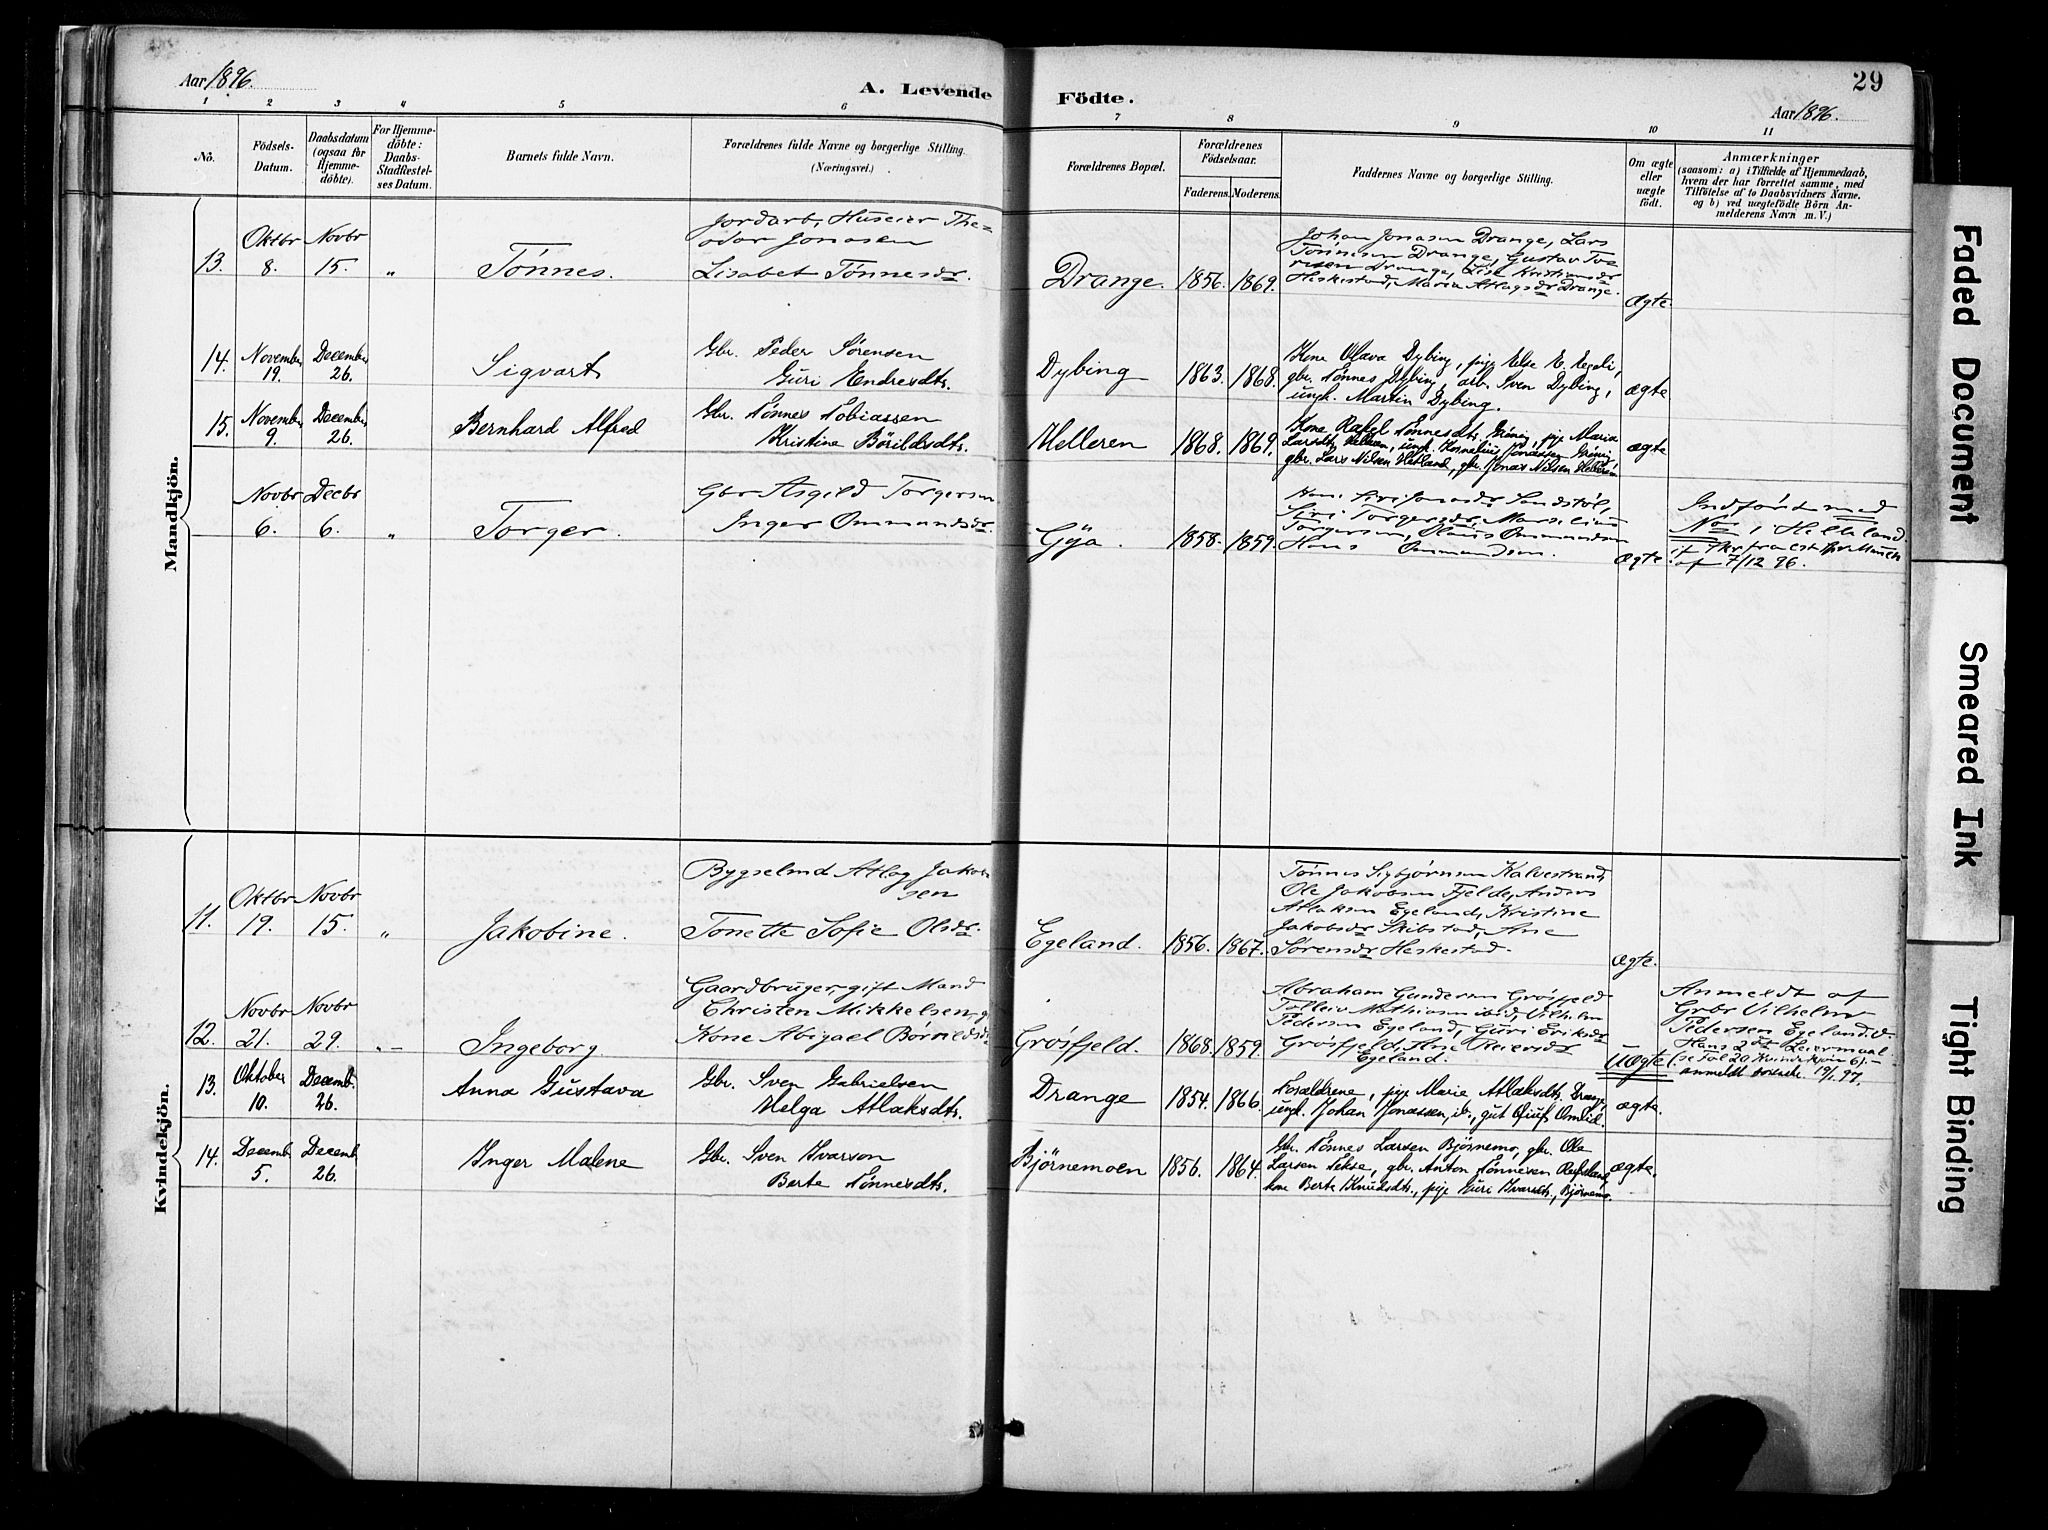 Aar 1896.
A. Levende Födte.
29
Aar 1896.
1 2 3 4 5 6 7 8 9 10 11
No.
Födsels-
Datum.
Daabsdatum
(ogsaa for
Hjemme-
döbte).
For Hjemme-
döbte:
Daabs-
Stadfæstel-
ses Datum.
Barnets fulde Navn.
Forældrenes fulde Navne og borgerlige Stilling.
(Næringsvei.)
Forældrenes Bopæl.
Forældrenes
Födselsaar.
Faderens. Moderens.
Faddernes Navne og borgerlige Stilling.
Om ægte
eller
uægte
födt.
Anmærkninger
(saasom: a) i Tilfælde af Hjemmedaab,
hvem der har forrettet samme, med
Tilföielse af to Daabsvidners Navne.
og b) ved uægtefödte Börn An-
melderens Navn m. V.)
Mandkjön.
13. Oktbr 8. Novbr 15. „ Tönnes.
Jordarb, Huseier The=
odor Jonasen
Lisabet Tönnesdr.
Drange. 1856. 1869.
Johan Jonasen Drange, Lars
Tönnesen Drange, Gustav Tor
resen Drange, Lise Kristiansdr
Heskestad, Maria Atlagsdr Drange.
ægte.
14. November 19. December 26. Sigvart
Gbr. Peder Sörensen
Guri Endresdtr.
Dybing 1863. 1868.
Kone Olava Dybing, pige Else E. Egeli,
gbr. Tönnes Dybing, arb. Sven Dybing,
ungk. Martin Dybing.
ægte
15. November 9. December 26. Bernhard Alfred
Gbr. Tönnes Tobiassen
Kristine Börildsdtr.
Helleren 1868. 1869.
Kone Rakel Tönnesdtr. Gröning, pige Maria
Larsdtr. Helleren, ungk. Kornelius Jonassen Gröning
gbr. Lars Nilsen Hetland, gbr. Jonas Nilsen Helleren
ægte
Novbr 6. Decbr 6. „ Torger.
Gbr Asgild Torgersen
Inger Ommundsdr.
Gya. 1858. 1859.
Siri Torgersdr, Marselius
Torgersen, Ommundsen
Hans Ommundsen.
ægte.
Indförd med
No i Helleland.
af 7/12 96.
Kvindekjön.
11. Oktbr 19. Novbr 15. „ Jakobine.
Bygselmd Atlag Jakob
sen
Tonette Sofie Olsdr.
Egeland. 1856. 1867.
Tönnes Sigbjörnsen Kalvestrand,
Ole Jakobsen Fjelde, Anders
Atlaksen Egeland, Kristine
Jakobsdr Skibstad, Ane
Sörensdr Heskestad.
ægte.
12. Novbr 21. Novbr 29. „– Ingeborg.
Gaardbruger, gift Mand
Christen Mikkelsen, g
Kone Abigael Börildsdr
Grösfjeld. 1868. 1859.
Abraham Gundersen Grösfjeld
Tolleiv Mathiasen ibid, Vilhelm
Pedersen Egeland, Guri Eriksdr
Grösfjeld, Ane Reiersdr
Egeland.
Uægte
Anmeldt af
Grbr Vilhelm
Pedersen Egeland.
Hans 2det Leiermaal
(se Fol 20 Kvindekjön 6). –
anmeldt 19/1. 97.
13. Oktober 10. Decemb. 26. Anna Gustava
Gbr. Sven Gabrielsen
Helga Atlaksdtr.
Drange 1854. 1866.
Forældrene, pige Marie Atlaksdtr. Drange,
ungk. Johan Jonassen, ib., gut Omlid.
ægte.
14. Decemb. 5. Decemb. 26. Inger Malene
Gbr. Sven Ivarson
Berte Tönnesdtr.
Björnemoen 1856. 1864.
Gbr. Tönnes Larsen Björnemo, gbr. Ole
Larsen Tekse, gbr. Anton Tönnesen Refsland,
kone Berte Knudsdtr., pige Guri Ivarsdtr., Björnemo.
ægte.
Faded Document
Smeared Ink
Tight Binding